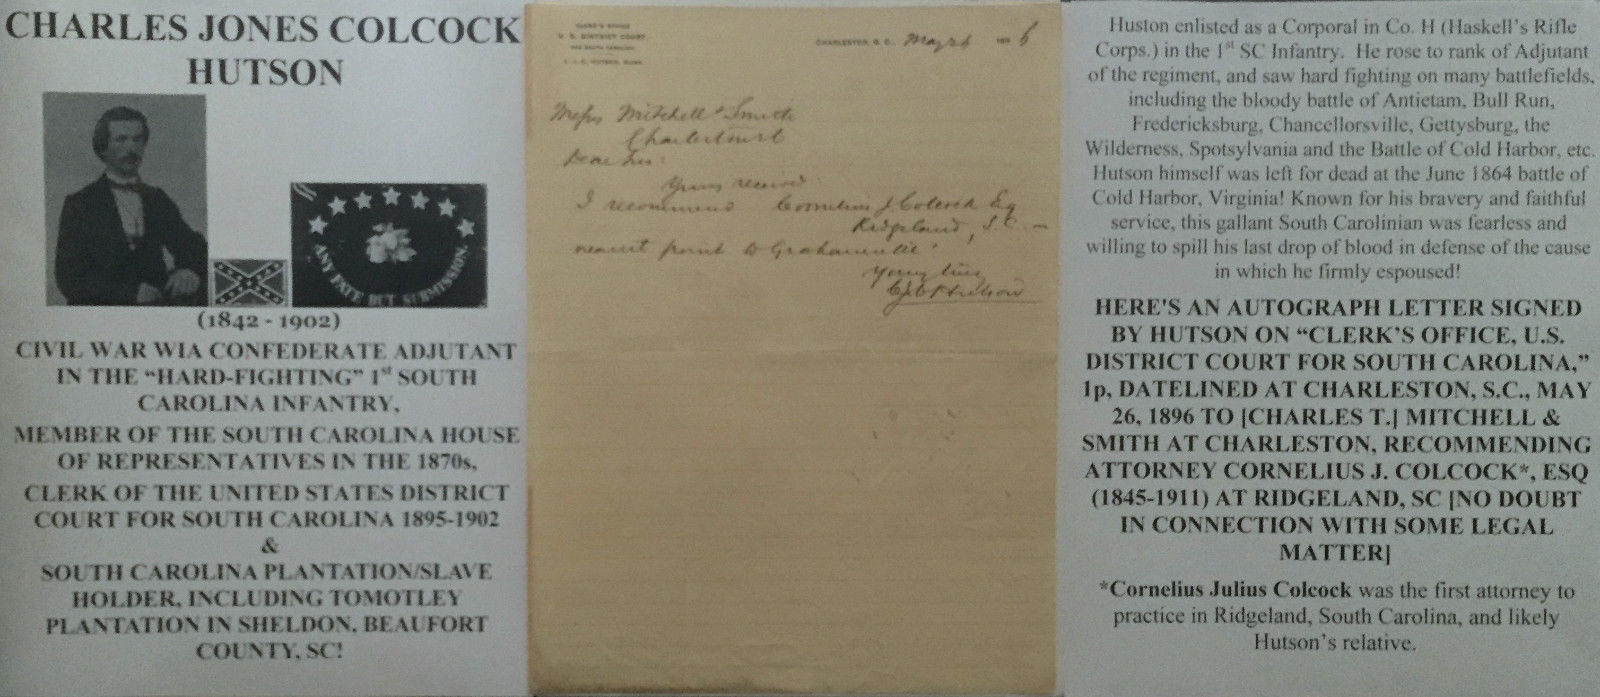 CHARLES JONES COLCOCK
HUTSON
ANY FATE BUT SUBMISSION.
(1842 - 1902)
CIVIL WAR WIA CONFEDERATE ADJUTANT
IN THE “HARD-FIGHTING” 1st SOUTH
CAROLINA INFANTRY,
MEMBER OF THE SOUTH CAROLINA HOUSE
OF REPRESENTATIVES IN THE 1870s,
CLERK OF THE UNITED STATES DISTRICT
COURT FOR SOUTH CAROLINA 1895-1902
&
SOUTH CAROLINA PLANTATION/SLAVE
HOLDER, INCLUDING TOMOTLEY
PLANTATION IN SHELDON, BEAUFORT
COUNTY, SC!
CLERK'S OFFICE
U. S. DISTRICT COURT,
FOR SOUTH CAROLINA
C. J. C. HUTSON, CLERK
CHARLESTON, S. C., May 26 1896
Messrs Mitchell & Smith
Charleston SC
Dear Sirs:
Yours received.
I recommend Cornelius J. Colcock Esq
Ridgeland, S.C. —
nearest point to Grahamville.
Yours truly
C.J.C. Hutson
Huston enlisted as a Corporal in Co. H (Haskell’s Rifle
Corps.) in the 1st SC Infantry. He rose to rank of Adjutant
of the regiment, and saw hard fighting on many battlefields,
including the bloody battle of Antietam, Bull Run,
Fredericksburg, Chancellorsville, Gettysburg, the
Wilderness, Spotsylvania and the Battle of Cold Harbor, etc.
Hutson himself was left for dead at the June 1864 battle of
Cold Harbor, Virginia! Known for his bravery and faithful
service, this gallant South Carolinian was fearless and
willing to spill his last drop of blood in defense of the cause
in which he firmly espoused!
HERE'S AN AUTOGRAPH LETTER SIGNED
BY HUTSON ON “CLERK’S OFFICE, U.S.
DISTRICT COURT FOR SOUTH CAROLINA,”
1p, DATELINED AT CHARLESTON, S.C., MAY
26, 1896 TO [CHARLES T.] MITCHELL &
SMITH AT CHARLESTON, RECOMMENDING
ATTORNEY CORNELIUS J. COLCOCK*, ESQ
(1845-1911) AT RIDGELAND, SC [NO DOUBT
IN CONNECTION WITH SOME LEGAL
MATTER]
*Cornelius Julius Colcock was the first attorney to
practice in Ridgeland, South Carolina, and likely
Hutson’s relative.